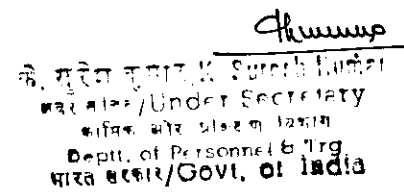 के. सुरेश कुमार/K. Suresh Kumar
अवर सचिव/Under Secretary
कार्मिक और प्रशिक्षण विभाग
Deptt. of Personnel & Trg.
भारत सरकार/Govt. of India